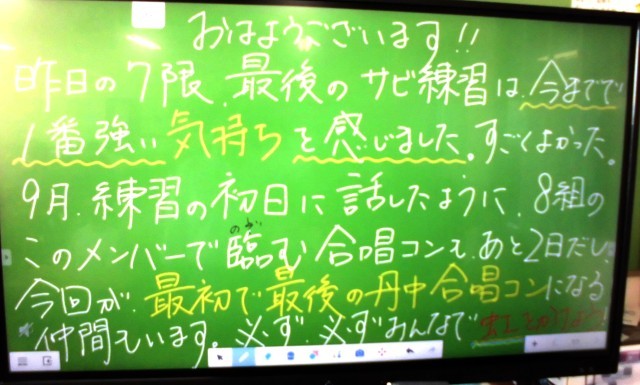 おはようございます!!
昨日の7限、最後のサビ練習は、今までで
1番強い気持ちを感じました。すごくよかった。
9月、練習の初日に話したように、8組の
このメンバーで臨む合唱コンも、あと2日だし、
今回が、最初で最後の丹中合唱コンになる
仲間もいます。必ず、必ずみんなで